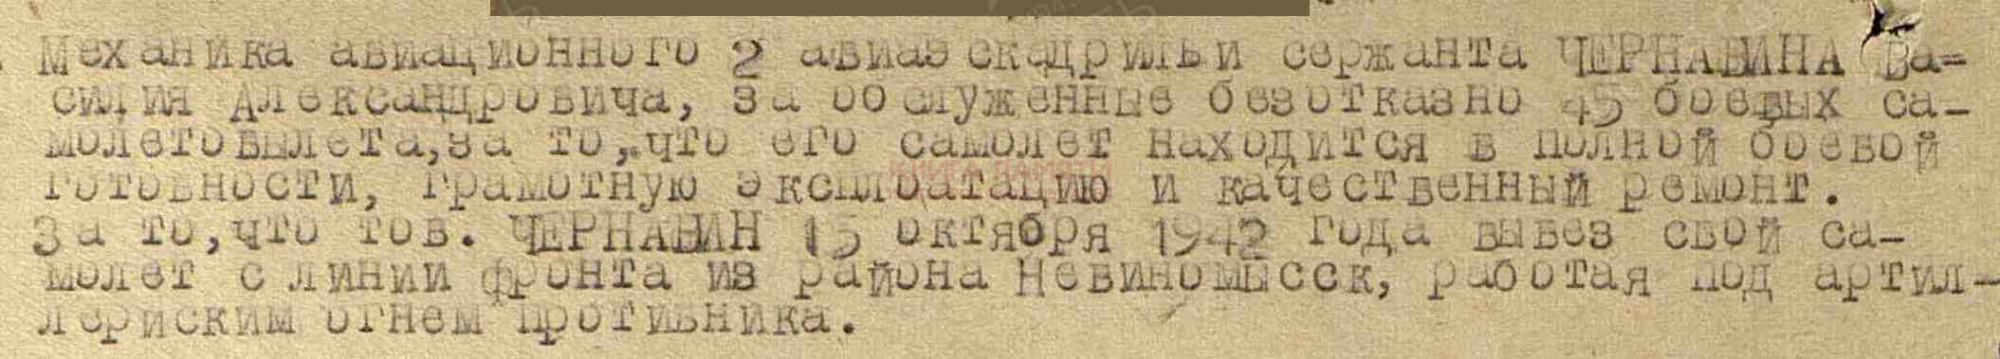 Механика авиационного 2 авиаэскадрильи сержанта ЧЕРНАВИНА Ва-
силия Александровича, за обслуженные безотказно 45 боевых са-
молетовылета,за то,что его самолет находится в полной боевой
готовности, грамотную эксплоатацию и качественный ремонт.
За то,что тов. ЧЕРНАВИН 15 октября 1942 года вывез свой са-
молет с линии фронта из района Невиномысск, работая под артил-
лериским огнем противника.